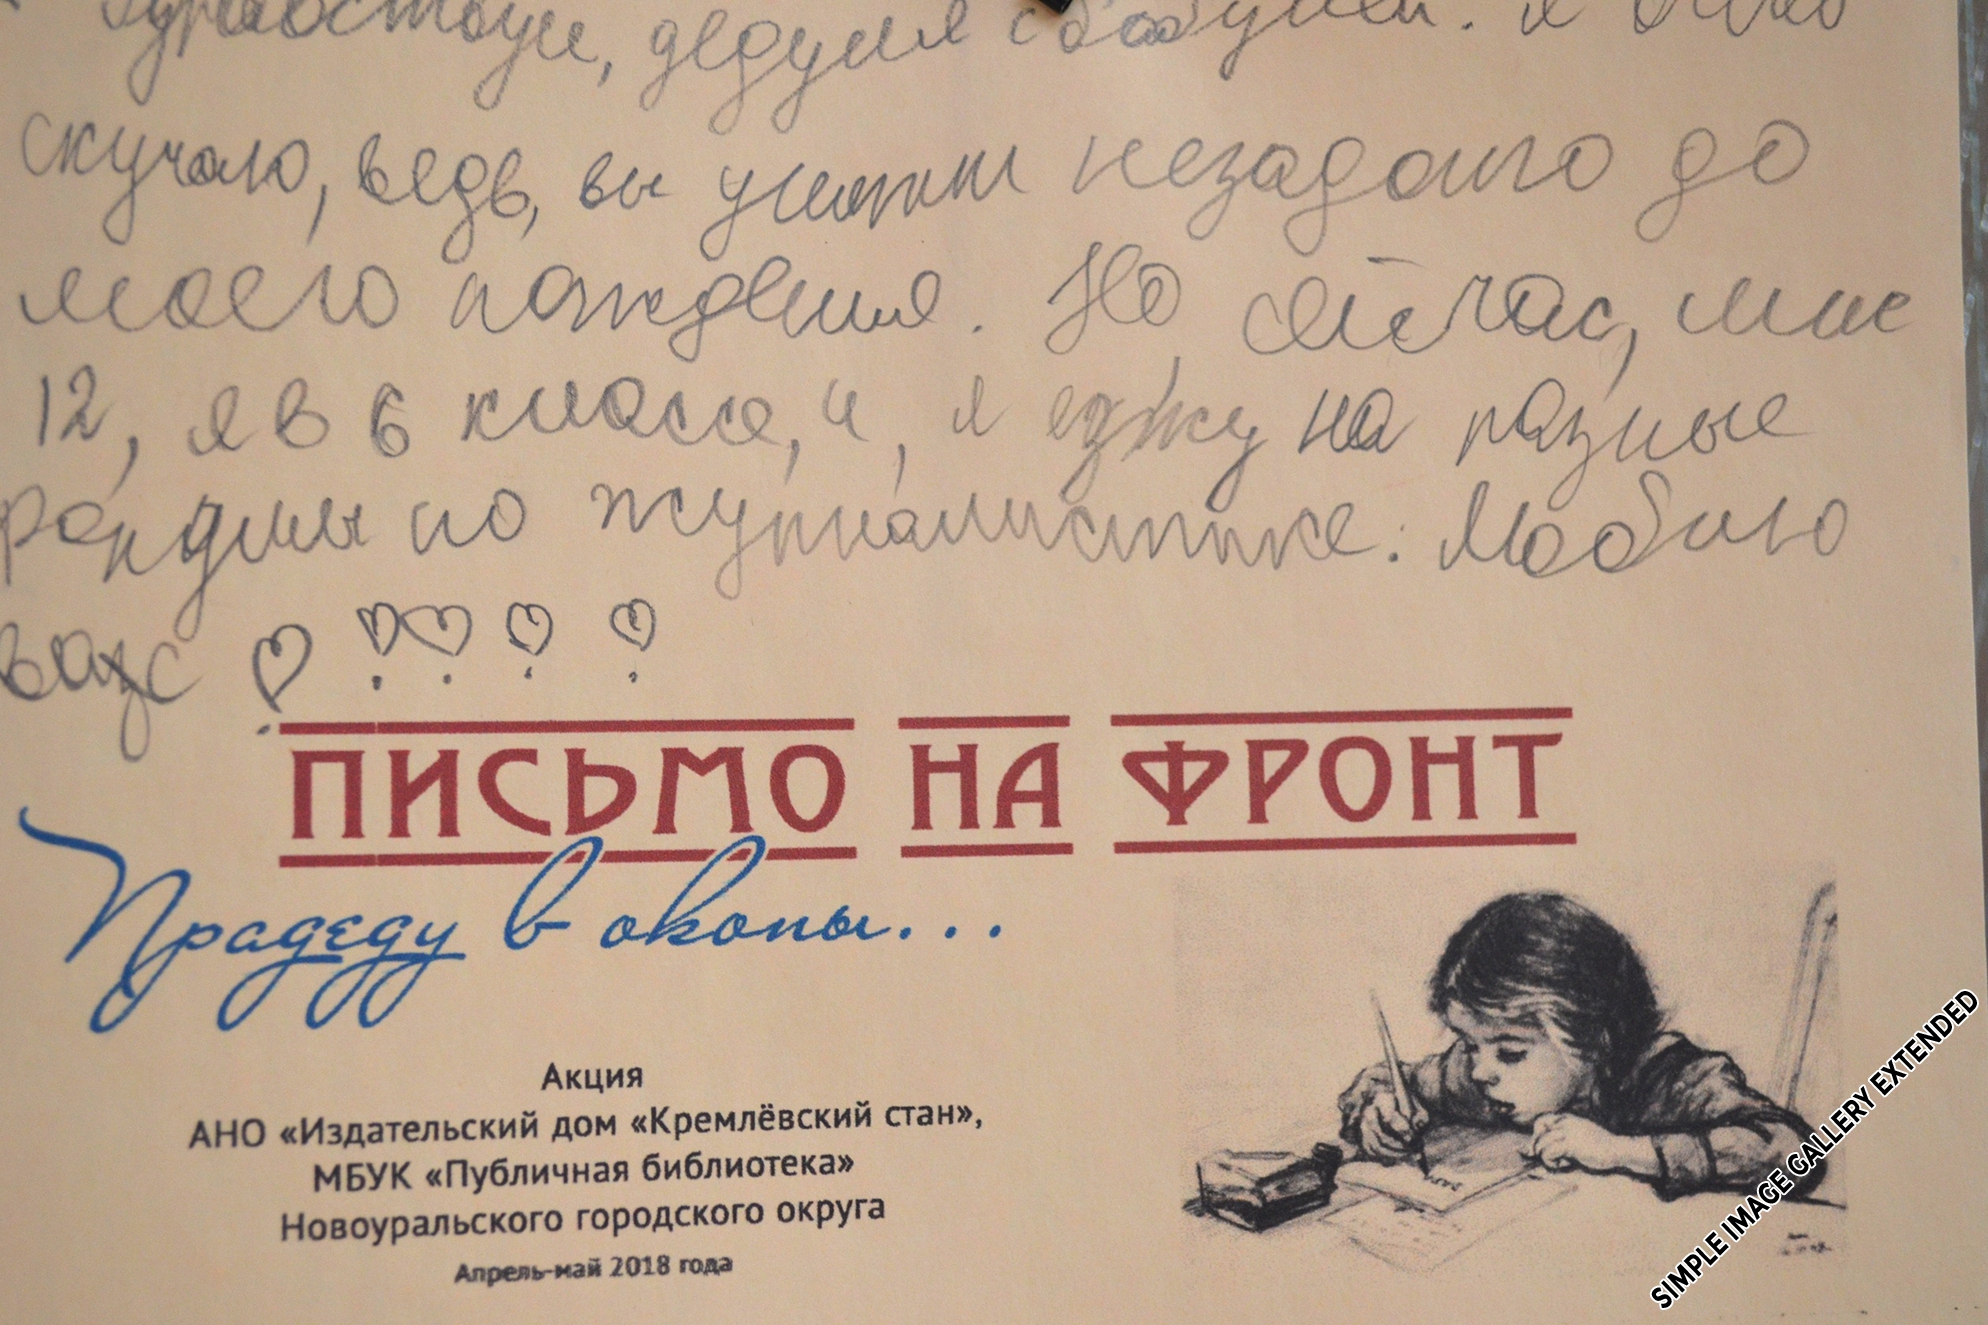 Здравствуй, дедуля с бабулей. Я очень
скучаю, ведь, вы умерли незадолго до
моего рождения. Но сейчас, мне
12, я в 6 классе, и, я езжу на разные
по журналистике. Люблю
вас
ПИСЬМО НА ФРОНТ
Прадеду в окопы...
Акция
АНО «Издательский дом «Кремлёвский стан»,
МБУК «Публичная библиотека»
Новоуральского городского округа
Апрель-май 2018 года
SIMPLE IMAGE GALLERY EXTENDED